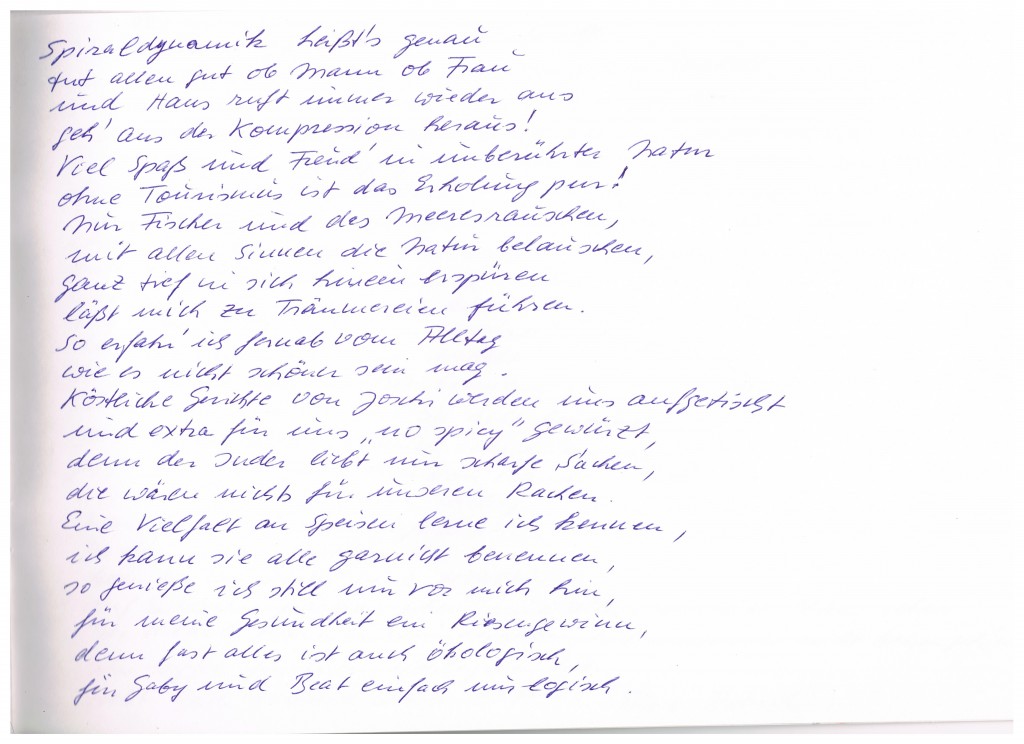 Spiraldynamik heißt's genau
tut allen gut ob Mann ob Frau
und Hans ruft immer wieder aus
geh' aus der Kompression heraus!
Viel Spaß und Freud' in unberührter Natur
ohne Tourismus ist das Erholung pur!
Nur Fischer und des Meeresrauschen,
mit allen Sinnen die Natur belauschen,
ganz tief in sich hinein erspüren
läßt mich zu Träumereien führen.
So erfahr' ich fernab vom Alltag
wie es nicht schöner sein mag.
Köstliche Gerichte von Joschi werden uns aufgetischt
und extra für uns „no spicy" gewürzt,
denn der Inder liebt nur scharfe Sachen,
die wären nichts für unseren Rachen.
Eine Vielfalt an Speisen lerne ich kennen,
ich kann sie alle garnicht benennen,
so genieße ich still nur vor mich hin,
für meine Gesundheit ein Riesengewinn,
denn fast alles ist auch ökologisch,
für Gaby und Beat einfach nur logisch.